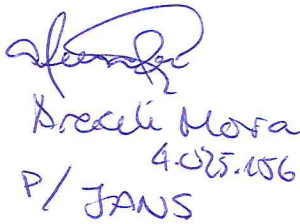 Araceli Mora
4.025.156
P/ JANS